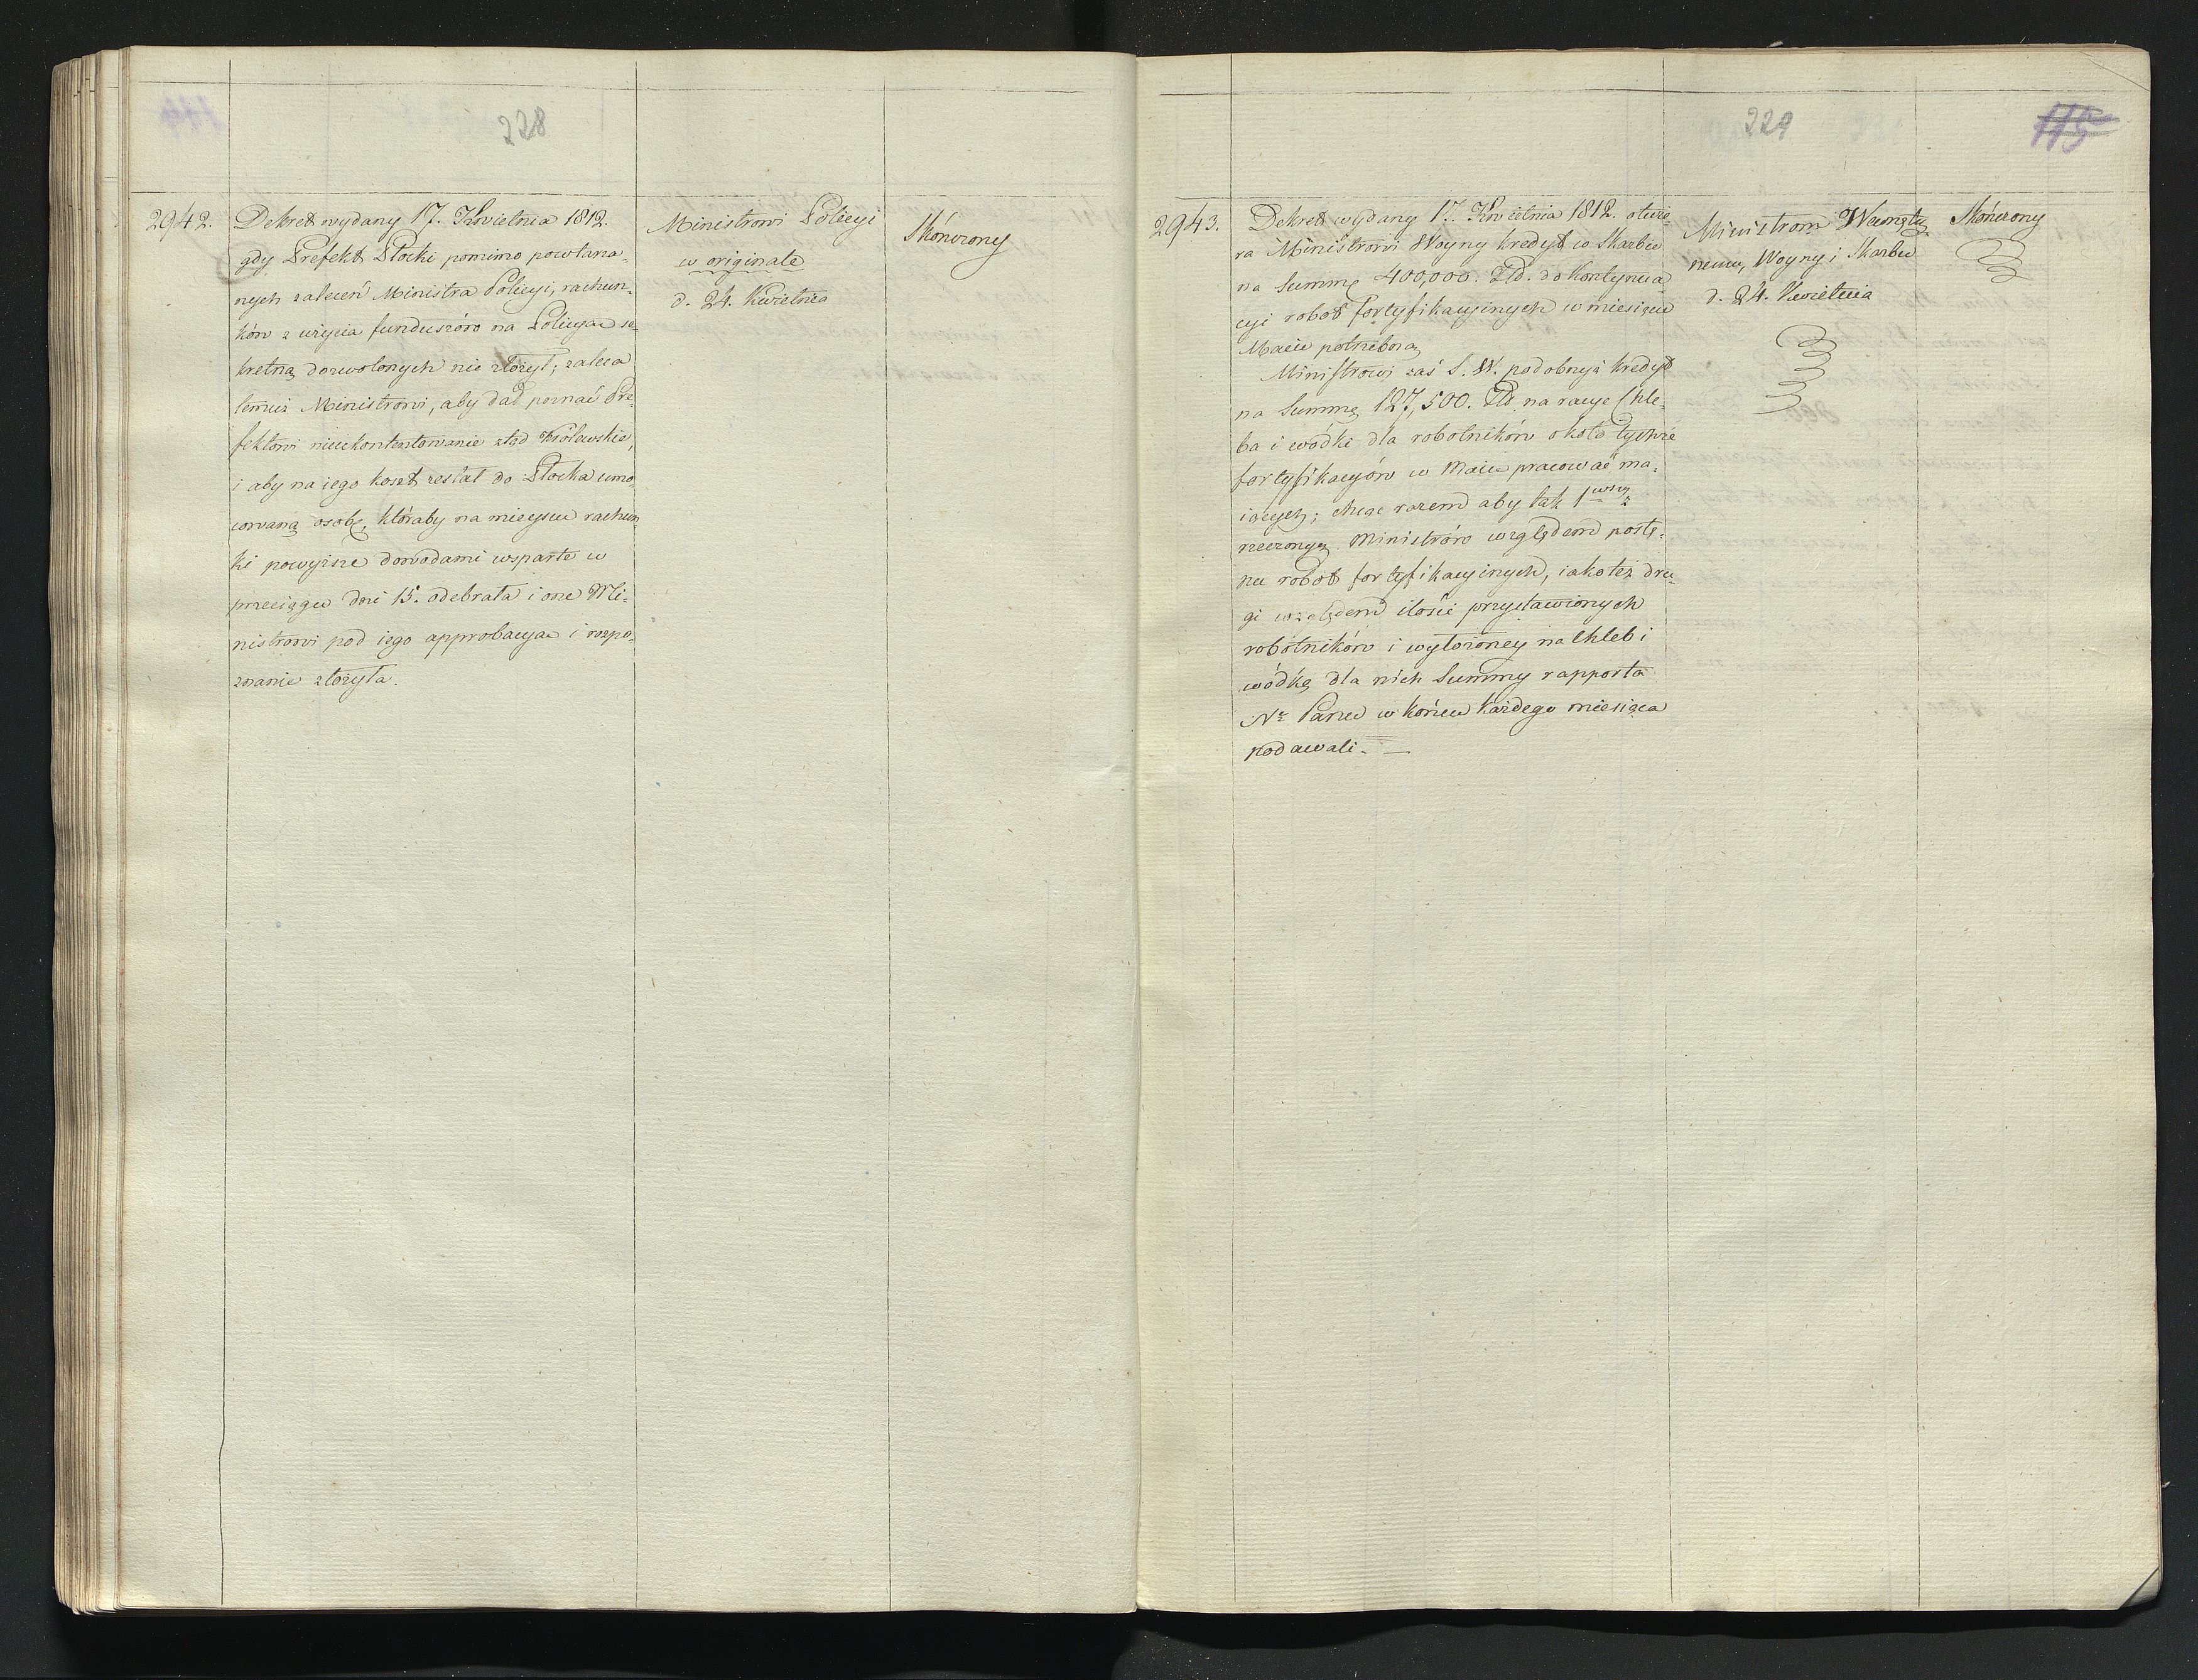 228
2942.
Dekret wydany 17. Kwietnia 1812.
gdy Prefekt Płocki pomimo powtarza-
nych zaleceń Ministra Policyi, rachun-
ków z użycia funduszów na Policyą se-
kretną dozwolonych nie złożył; zaleca
temuż Ministrowi, aby dał poznać Pre-
fektowi nieukontentowanie ztąd Królewskie,
i aby na iego koszt zesłał do Płocka umo-
cowaną osobę, któraby na mieyscu rachun-
ki powyższe dowodami wsparte w
przeciągu dni 15. odebrała i one Mi-
nistrowi pod iego approbacyą i rozpo-
znanie złożyła.
Ministrowi Policyi
w originale
d. 24. Kwietnia
Skończony
229
115
2943.
Dekret wydany 17. Kwietnia 1812. otwie-
ra Ministrowi Woyny kredyt w Skarbie
na Summę 400,000. Złd. do kontynua-
cyi robot fortyfikacyinych w miesiącu
Maiu potrzebną
Ministrowi zaś S. W. podobnyż kredyt
na Summę 127,500. Złd. na racye Chle-
ba i wódki dla robotników około tychże
fortyfikacyów w Maiu pracować ma-
iących; chcąc razem aby tak 1wszy
rzeczonych Ministrów względem postę-
pu robot fortyfikacyinych, iakoteż dru-
gi względem ilości przystawionych
robotników i wyłożoney na Chleb i
wódkę dla nich Summy rapporta
Nr. Panu w końcu każdego miesiąca
podawali. —
Ministrom Wewnętrz-
nemu, Woyny i Skarbu
d. 24. Kwietnia
Skończony